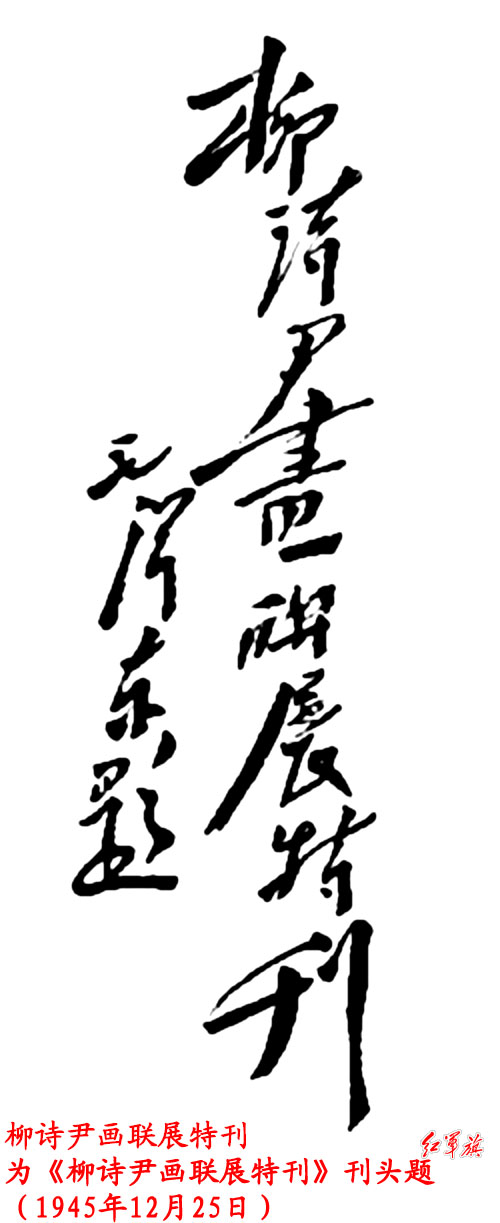 柳诗尹畫联展特刊
毛泽东题
柳诗尹画联展特刊
为《柳诗尹画联展特刊》刊头题
（1945年12月25日）
红军旗